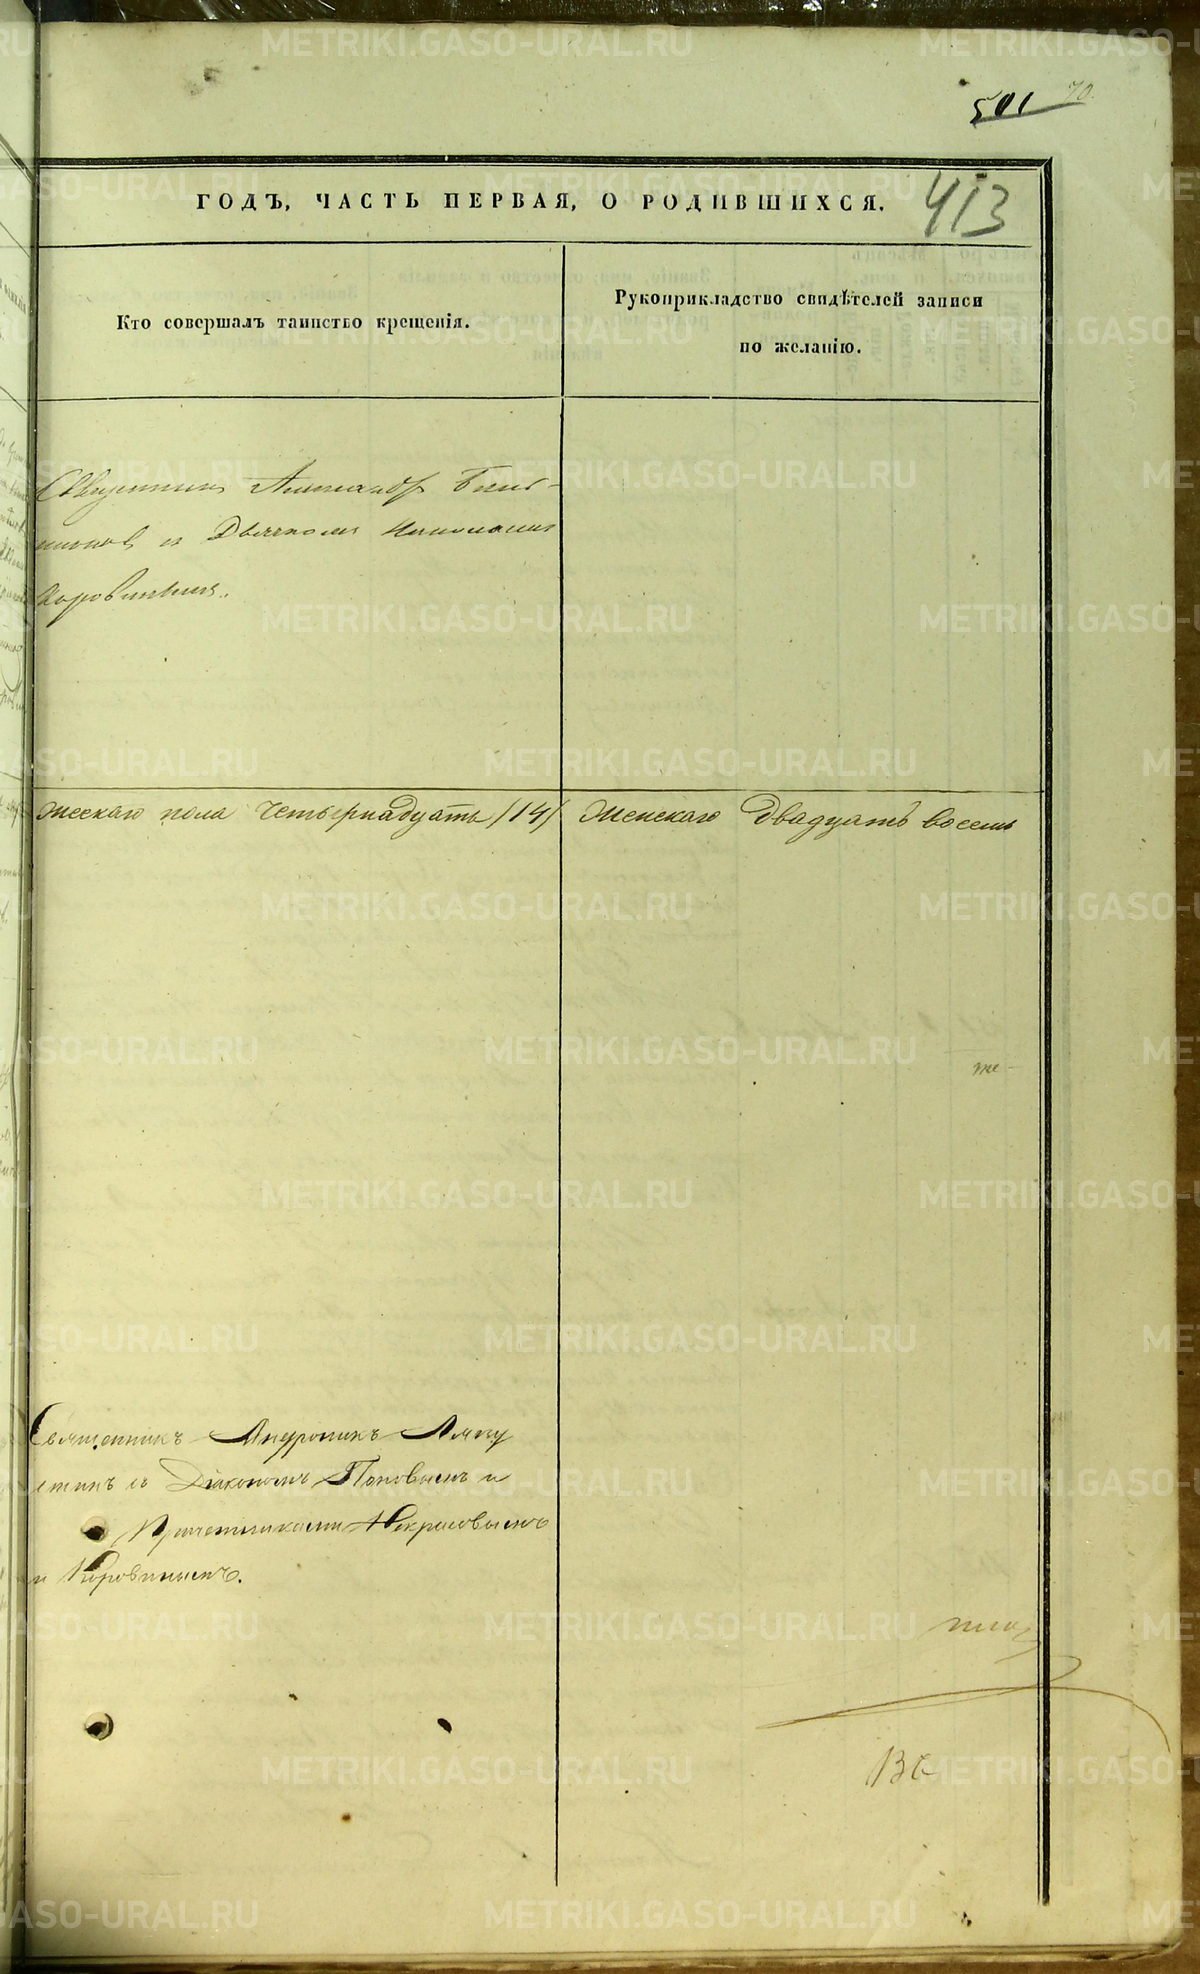 501 70.
ГОДЪ, ЧАСТЬ ПЕРВАЯ, О РОДИВШИХСЯ. 413
Кто совершалъ таинство крещенія.
Рукоприкладство свидѣтелей записи
по желанію.
Священник Александр
Дьячкомъ Николаемъ
Коровинымъ.
жескаго пола Четырнадцать /14/ Женскаго Двадцать восемь
же-
Священникъ Андроникъ
съ Діакономъ Поповымъ и
Причетниками Некрасовымъ
и Коровинымъ.
METRIKI.GASO-URAL.RU